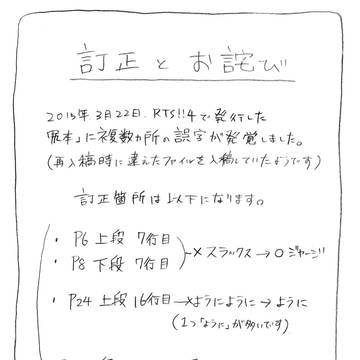 訂正とお詫び
2015年3月22日.RTS!!4で発行した
「尻本」に複数カ所の誤字が発覚しました。
(再入稿時に違えたファイルを入稿していたようです)
訂正箇所は以下になります。
・P6 上段 7行目
・P8 下段 7行目 ×スラックス→○ジャージ
・P24 上段 16行目→×ようにように→ように
(1つ「ように」が多いです)